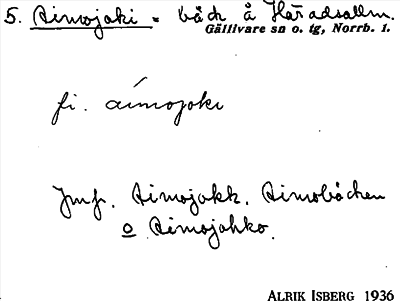 5. Aimojoki = bäck å Häradsallm.
Gällivare sn o. tg, Norrb. l.
fi. aimojoki
Jmf. Aimojokk, Aimobäcken
o Aimojohko.
ALRIK ISBERG 1936